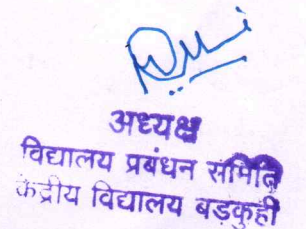 अध्यक्ष
विद्यालय प्रबंधन समिति
केंद्रीय विद्यालय बड़कुही